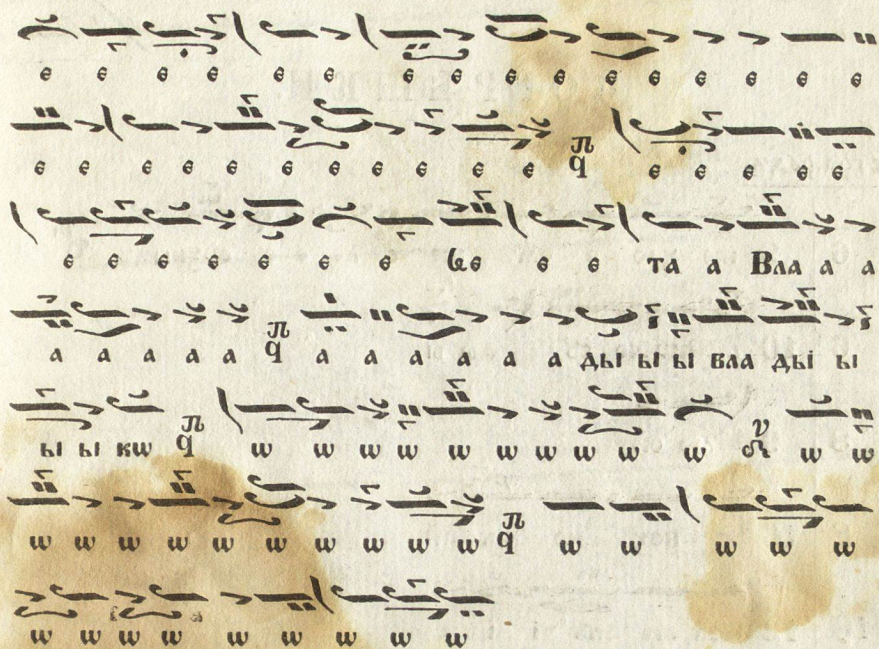 є є є є є є є є є є є є є є є є
є є є є є є є є є є є п q є є є є є
є є є є є є є Сє є є та а Вла а а
а а а а а п q а а а а а а ды ы ы вла ды ы
ы ы кѡ п q ѡ ѡ ѡ ѡ ѡ ѡ ѡ ѡ ѡ ѡ ѡ ѡ
ѡ ѡ ѡ ѡ ѡ ѡ ѡ ѡ ѡ ѡ п q ѡ ѡ ѡ ѡ ѡ
ѡ ѡ ѡ ѡ ѡ ѡ ѡ ѡ ѡ